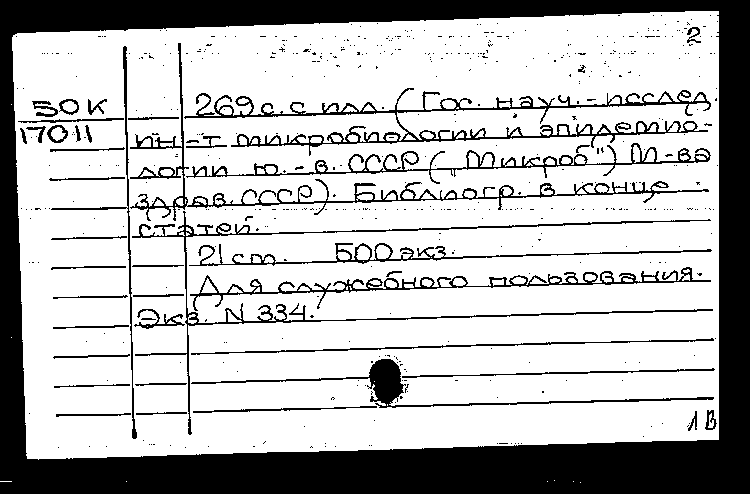 2
50К 269 с. с илл. (Гос. науч.-исслед.
17011 ин-т микробиологии и эпидемио-
логии ю.-в. СССР („Микроб") М-ва
здрав. СССР). Библиогр. в конце
статей.
21 cm. 500 экз.
Для служебного пользования.
Экз. N 334.
1В